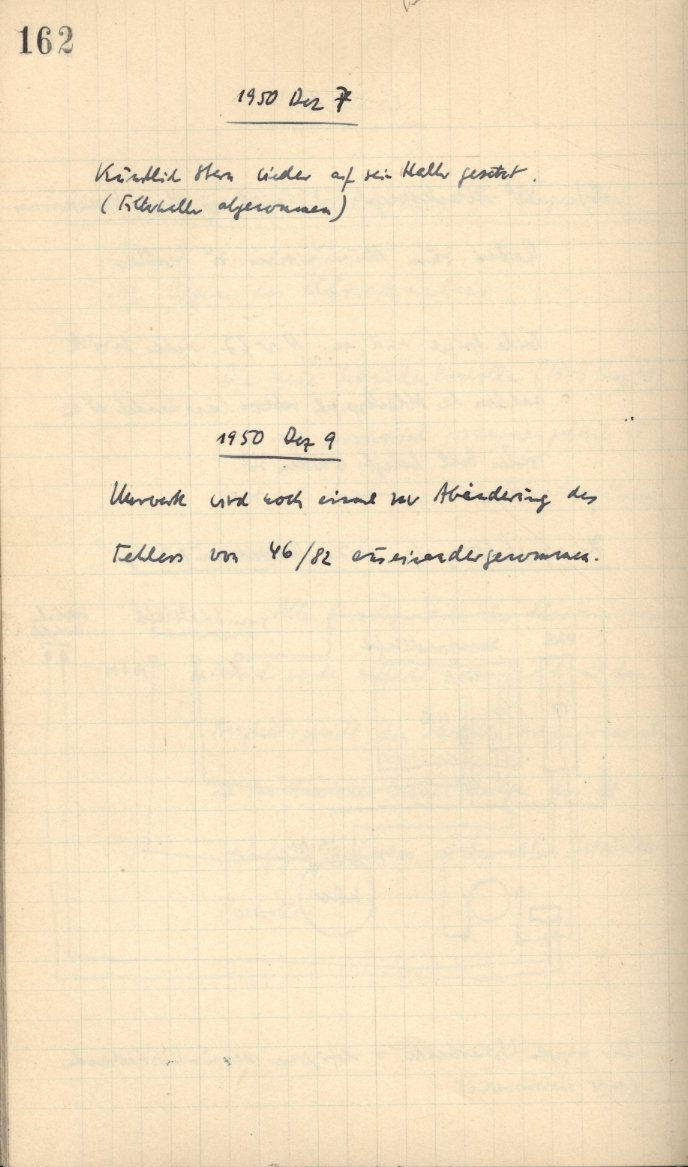 162
1950 Dez 7
Künstlich Stern wieder auf sein Halter gesetzt.
(Filterhalter abgenommen)
1950 Dez 9
Uhrwerk wird noch einmal zur Abänderung des
Fehlers von 46/82 auseinandergenommen.